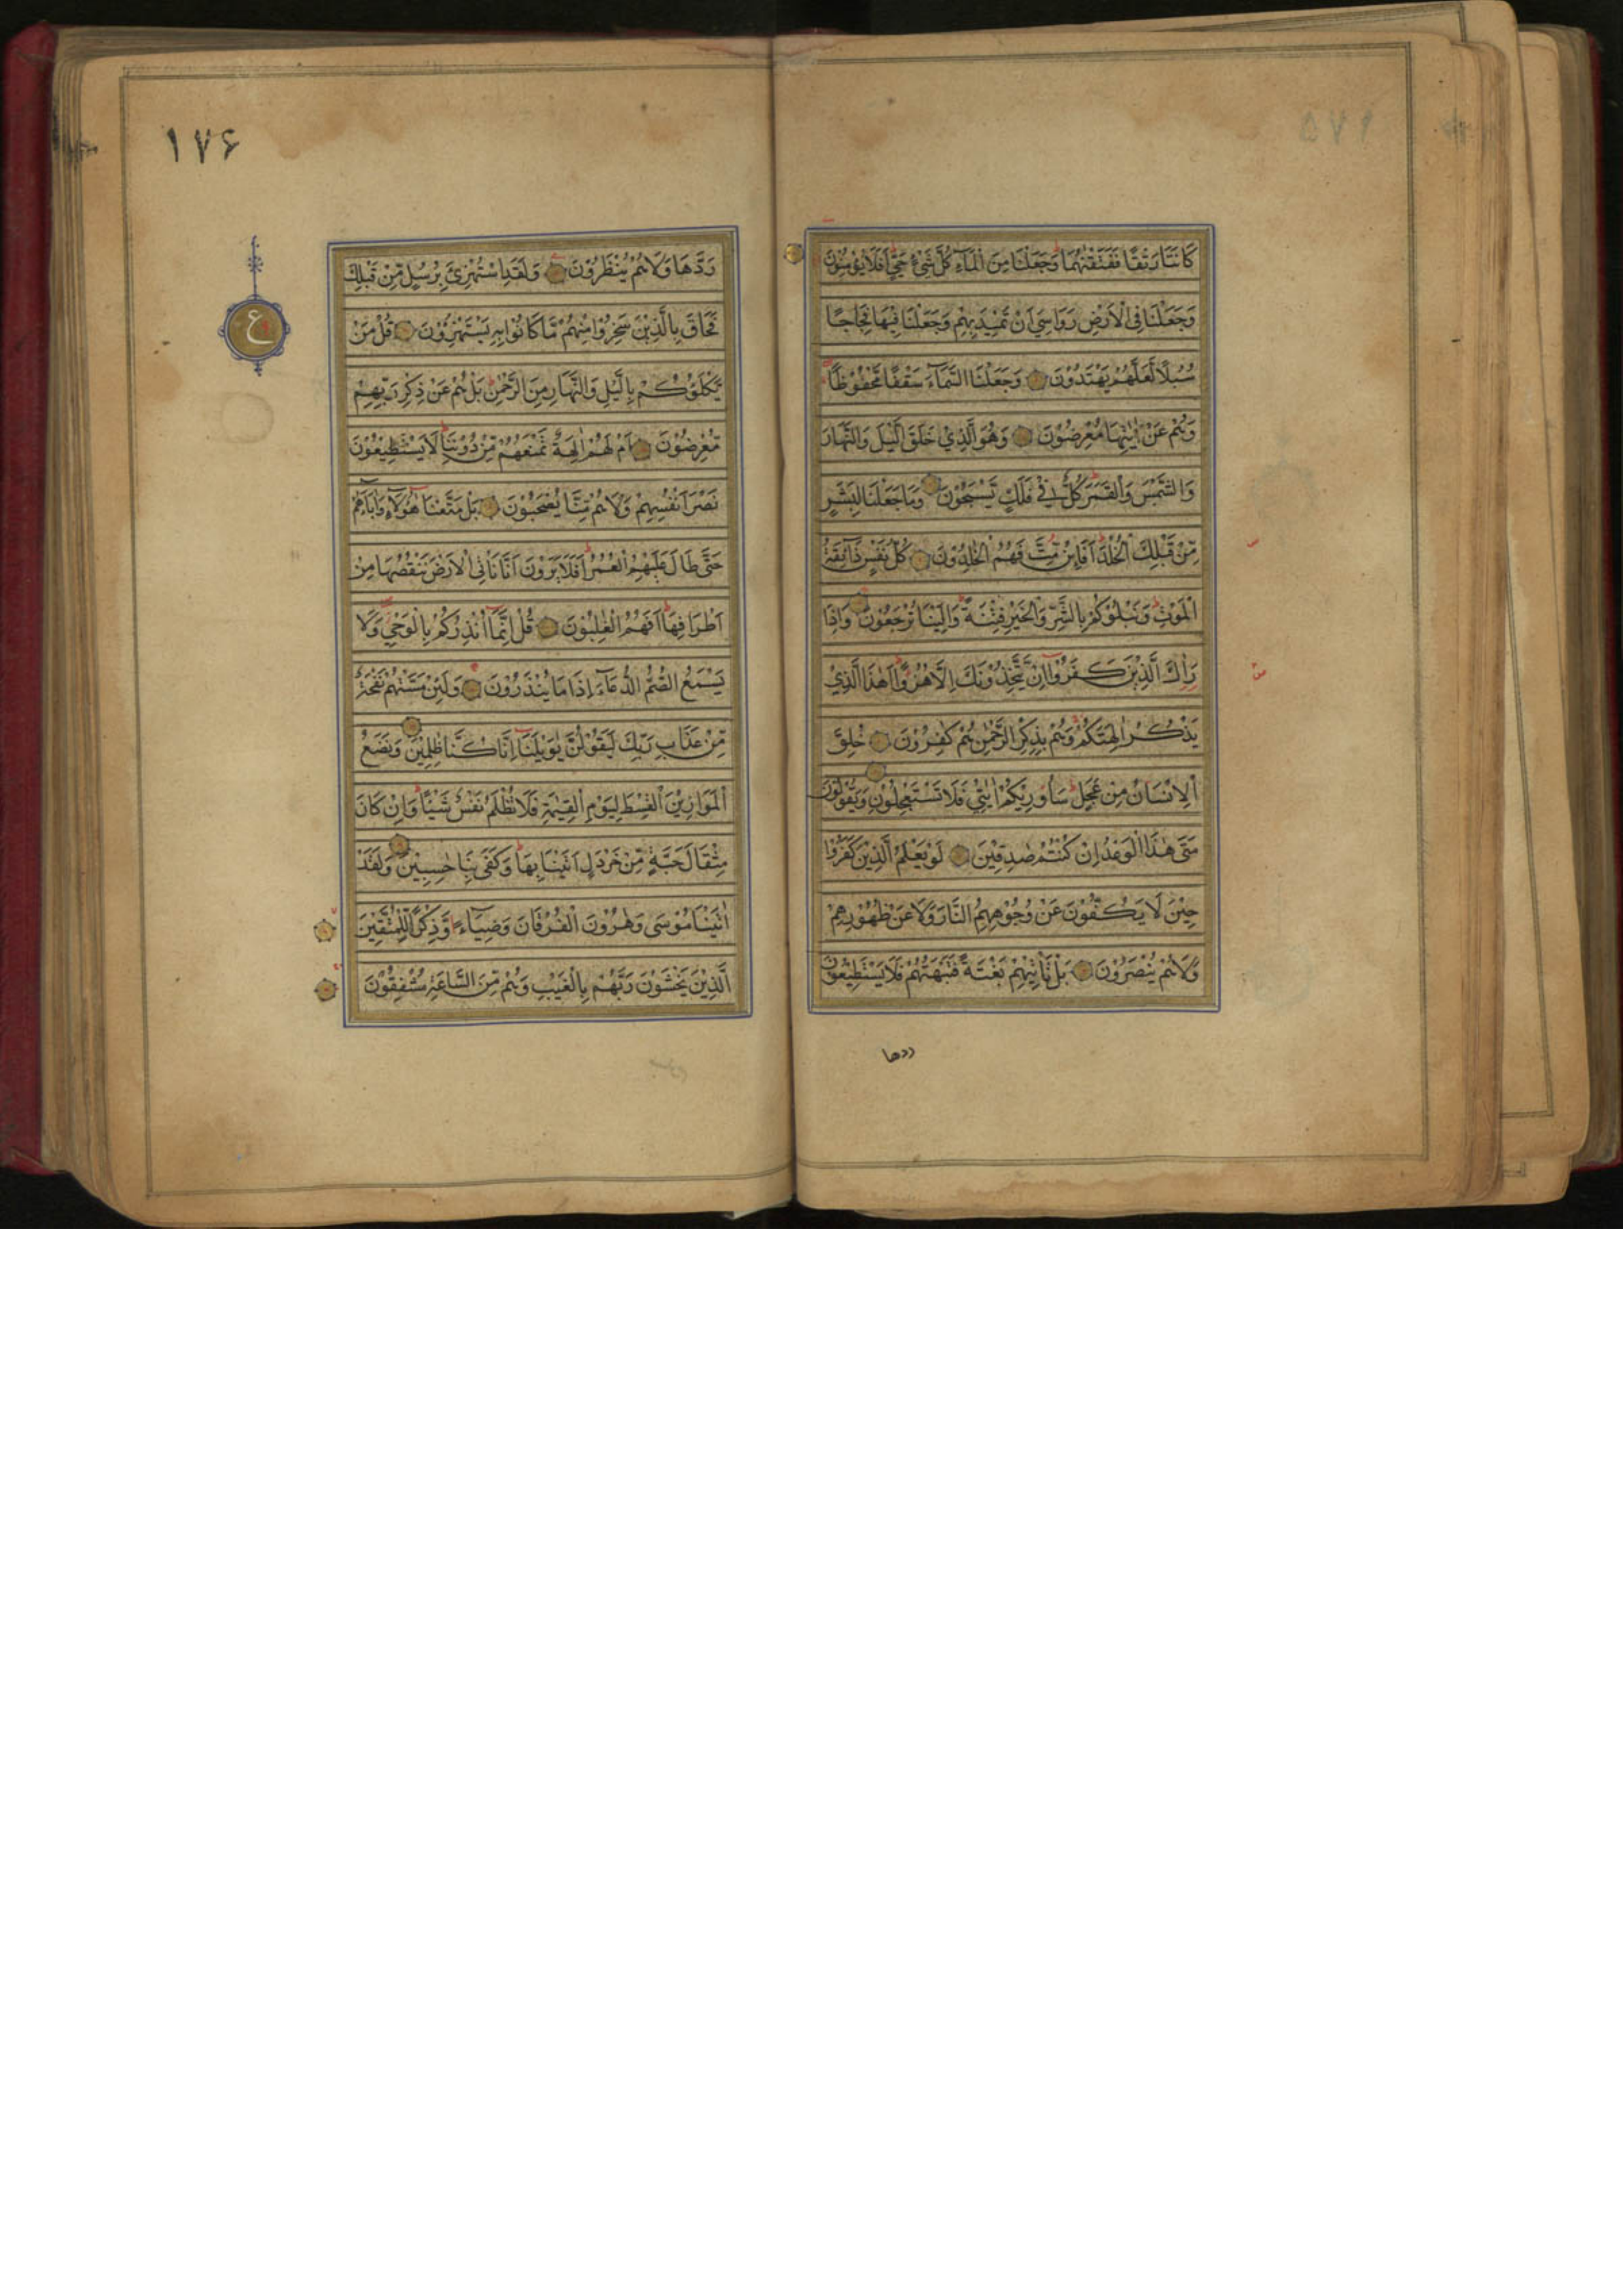 كَانَتَا رَتْقًا فَفَتَقْنٰهُمَا وَجَعَلْنَا مِنَ الْمَآءِ كُلَّ شَيْءٍ حَيٍّ اَفَلَا يُؤْمِنُوْنَ
وَجَعَلْنَا فِي الْاَرْضِ رَوَاسِيَ اَنْ تَمِيْدَ بِهِمْ وَجَعَلْنَا فِيْهَا فِجَاجًا
سُبُلًا لَعَلَّهُمْ يَهْتَدُوْنَ وَجَعَلْنَا السَّمَآءَ سَقْفًا مَّحْفُوْظًا
وَهُمْ عَنْ اٰيٰتِهَا مُعْرِضُوْنَ وَهُوَ الَّذِيْ خَلَقَ الَّيْلَ وَالنَّهَارَ
وَالشَّمْسَ وَالْقَمَرَ كُلٌّ فِيْ فَلَكٍ يَّسْبَحُوْنَ وَمَا جَعَلْنَا لِبَشَرٍ
مِّنْ قَبْلِكَ الْخُلْدَ اَفَا۟ئِنْ مِّتَّ فَهُمُ الْخٰلِدُوْنَ كُلُّ نَفْسٍ ذَآئِقَةُ
الْمَوْتِ وَنَبْلُوْكُمْ بِالشَّرِّ وَالْخَيْرِ فِتْنَةً وَاِلَيْنَا تُرْجَعُوْنَ وَاِذَا
رَاٰكَ الَّذِيْنَ كَفَرُوْا اِنْ يَّتَّخِذُوْنَكَ اِلَّا هُزُوًا اَهٰذَا الَّذِيْ
يَذْكُرُ اٰلِهَتَكُمْ وَهُمْ بِذِكْرِ الرَّحْمٰنِ هُمْ كٰفِرُوْنَ خُلِقَ
الْاِنْسَانُ مِنْ عَجَلٍ سَاُورِيْكُمْ اٰيٰتِيْ فَلَا تَسْتَعْجِلُوْنِ وَيَقُوْلُوْنَ
مَتٰى هٰذَا الْوَعْدُ اِنْ كُنْتُمْ صٰدِقِيْنَ لَوْ يَعْلَمُ الَّذِيْنَ كَفَرُوْا
حِيْنَ لَا يَكُفُّوْنَ عَنْ وُجُوْهِهِمُ النَّارَ وَلَا عَنْ ظُهُوْرِهِمْ
وَلَا هُمْ يُنْصَرُوْنَ بَلْ تَاْتِيْهِمْ بَغْتَةً فَتَبْهَتُهُمْ فَلَا يَسْتَطِيْعُوْنَ
ردها
۱۷۶
ع
رَدَّهَا وَلَا هُمْ يُنْظَرُوْنَ وَلَقَدِ اسْتُهْزِئَ بِرُسُلٍ مِّنْ قَبْلِكَ
فَحَاقَ بِالَّذِيْنَ سَخِرُوْا مِنْهُمْ مَّا كَانُوْا بِهٖ يَسْتَهْزِؤُنَ قُلْ مَنْ
يَّكْلَؤُكُمْ بِالَّيْلِ وَالنَّهَارِ مِنَ الرَّحْمٰنِ بَلْ هُمْ عَنْ ذِكْرِ رَبِّهِمْ
مُّعْرِضُوْنَ اَمْ لَهُمْ اٰلِهَةٌ تَمْنَعُهُمْ مِّنْ دُوْنِنَا لَا يَسْتَطِيْعُوْنَ
نَصْرَ اَنْفُسِهِمْ وَلَا هُمْ مِّنَّا يُصْحَبُوْنَ بَلْ مَتَّعْنَا هٰؤُلَآءِ وَاٰبَآءَهُمْ
حَتّٰى طَالَ عَلَيْهِمُ الْعُمُرُ اَفَلَا يَرَوْنَ اَنَّا نَاْتِي الْاَرْضَ نَنْقُصُهَا مِنْ
اَطْرَافِهَا اَفَهُمُ الْغٰلِبُوْنَ قُلْ اِنَّمَا اُنْذِرُكُمْ بِالْوَحْيِ وَلَا
يَسْمَعُ الصُّمُّ الدُّعَآءَ اِذَا مَا يُنْذَرُوْنَ وَلَئِنْ مَسَّتْهُمْ نَفْحَةٌ
مِّنْ عَذَابِ رَبِّكَ لَيَقُوْلُنَّ يٰوَيْلَنَا اِنَّا كُنَّا ظٰلِمِيْنَ وَنَضَعُ
الْمَوَازِيْنَ الْقِسْطَ لِيَوْمِ الْقِيٰمَةِ فَلَا تُظْلَمُ نَفْسٌ شَيْئًا وَاِنْ كَانَ
مِثْقَالَ حَبَّةٍ مِّنْ خَرْدَلٍ اَتَيْنَا بِهَا وَكَفٰى بِنَا حٰسِبِيْنَ وَلَقَدْ
اٰتَيْنَا مُوْسٰى وَهٰرُوْنَ الْفُرْقَانَ وَضِيَآءً وَّذِكْرًا لِّلْمُتَّقِيْنَ
الَّذِيْنَ يَخْشَوْنَ رَبَّهُمْ بِالْغَيْبِ وَهُمْ مِّنَ السَّاعَةِ مُشْفِقُوْنَ